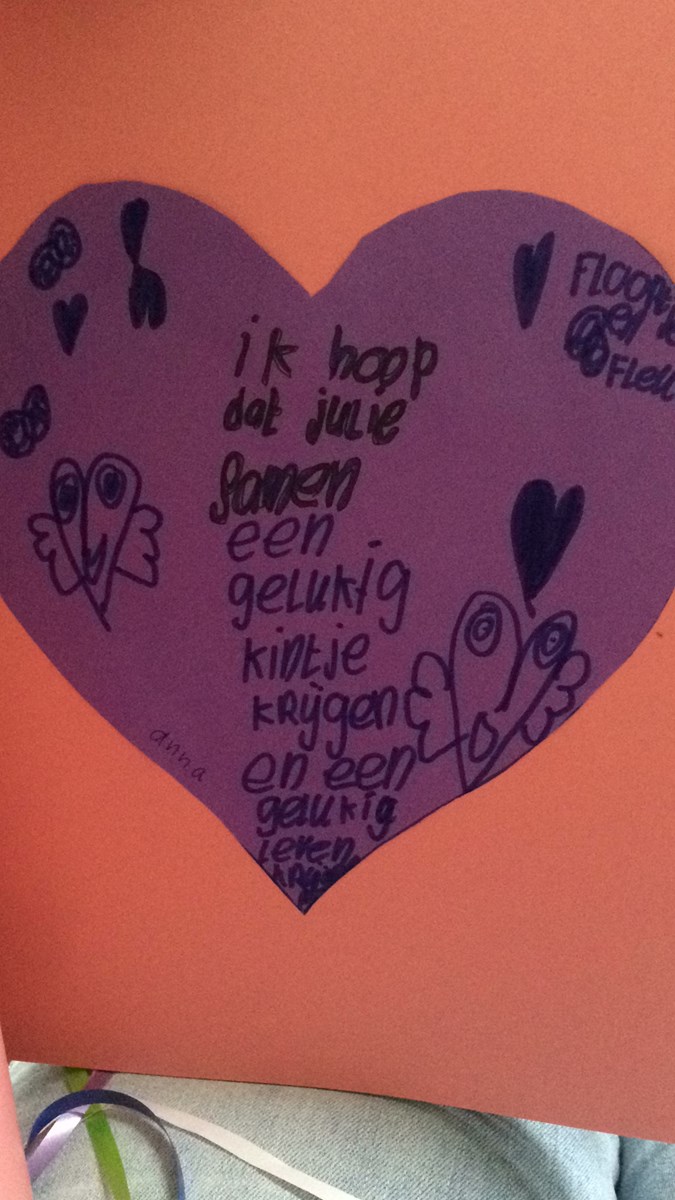 ik hoop
dat julie
samen
een
gelukig
kintje
krijgen
en een
gelukig
leven
anna